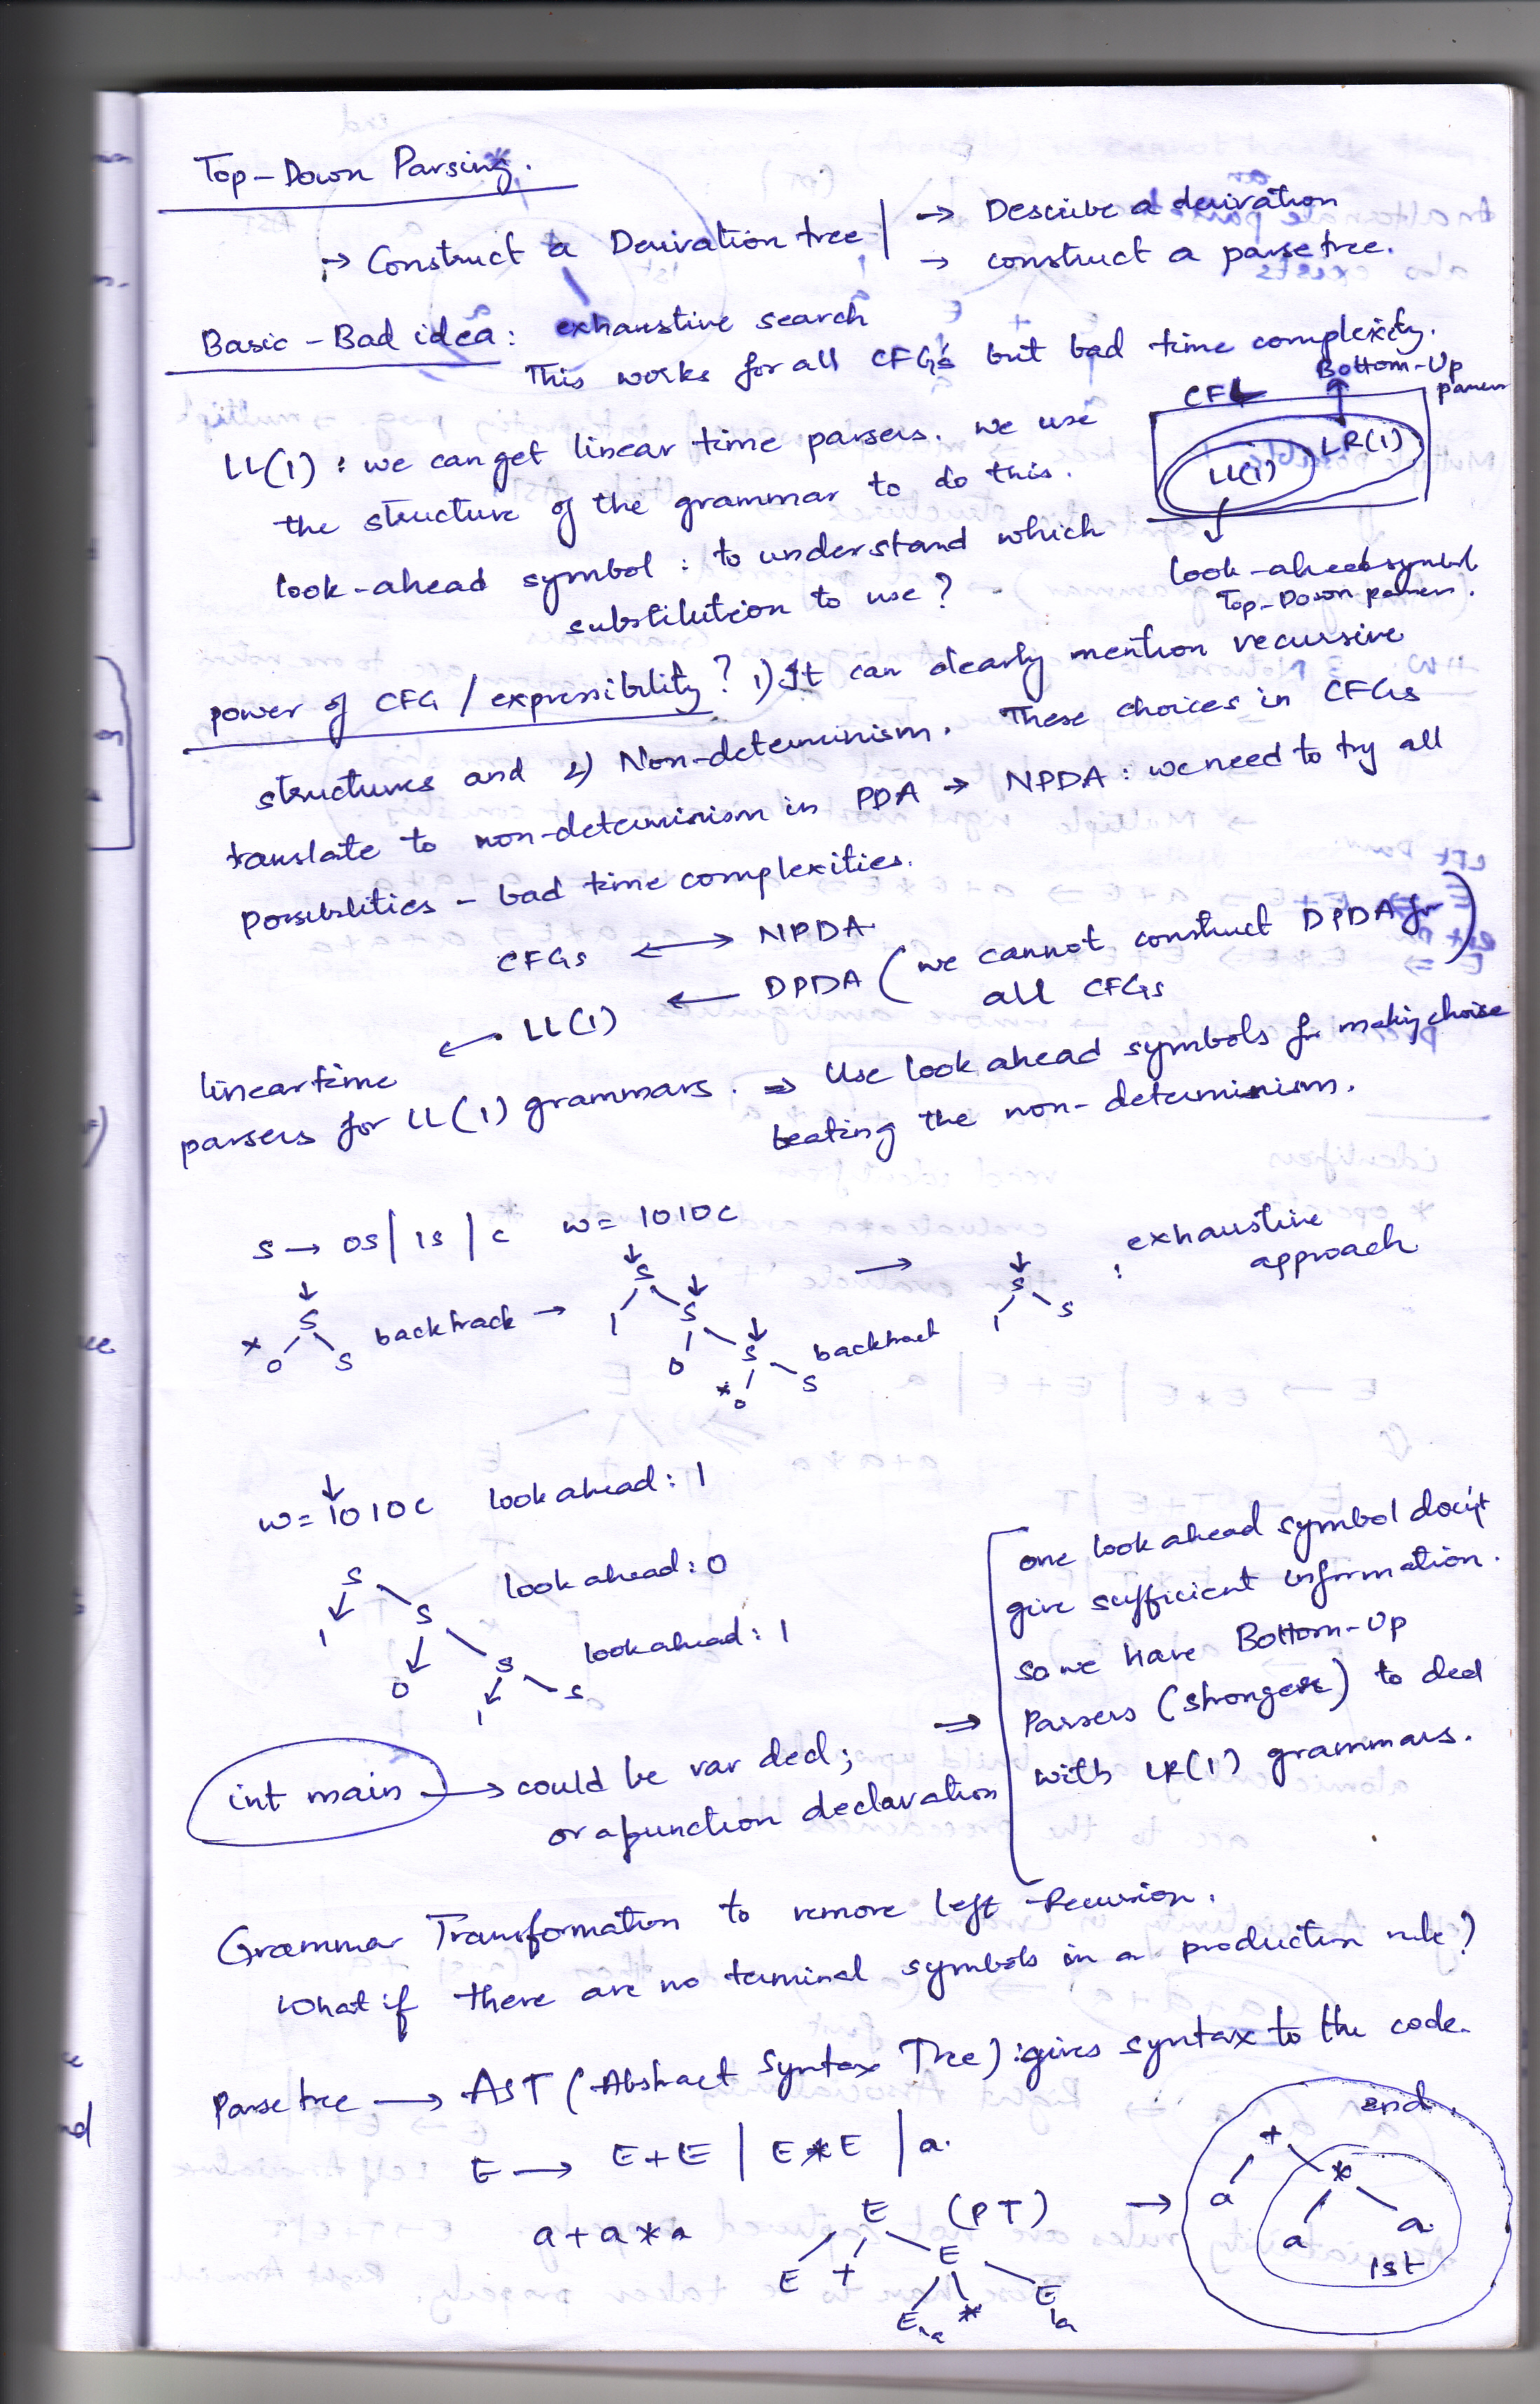 Top-Down Parsing.
→ Construct a Derivation tree | → Describe a derivation
→ construct a parse tree.
Basic - Bad idea: exhaustive search
This works for all CFGs but bad time complexity.
LL(1) : we can get linear time parsers. we use
the structure of the grammar to do this.
look-ahead symbol : to understand which
substitution to use?
CFL
Bottom-Up
parsers
LL(1)
LR(1)
look-ahead symbol
Top-Down parsers.
power of CFG / expressibility? 1) It can clearly mention recursive
structures and 2) Non-determinism. These choices in CFGs
translate to non-determinism in PDA → NPDA : we need to try all
possibilities - bad time complexities.
CFGs ⟷ NPDA
LL(1) ← DPDA (we cannot construct DPDA for
all CFGs)
linear time
parsers for LL(1) grammars. ⇒ Use look ahead symbols for making choice
beating the non-determinism.
S → 0S | 1S | c w = 1010c
S
* 0 S backtrack →
S
1 S
0 S
* 0 S backtrack
→
S
1 S
: exhaustive
approach
w = 1010c look ahead : 1
S
1 S look ahead : 0
0 S look ahead : 1
1 S
int main → could be var decl;
or a function declaration
⇒ one look ahead symbol doesn't
give sufficient information.
so we have Bottom-Up
Parsers (stronger) to deal
with LR(1) grammars.
Grammar Transformation to remove left-Recursion.
What if there are no terminal symbols in a production rule?
Parse tree → AST (Abstract Syntax Tree) : gives syntax to the code.
E → E+E | E*E | a.
a + a * a
E (PT)
E + E
E * E
a a
→
2nd.
+
a *
a a
1st